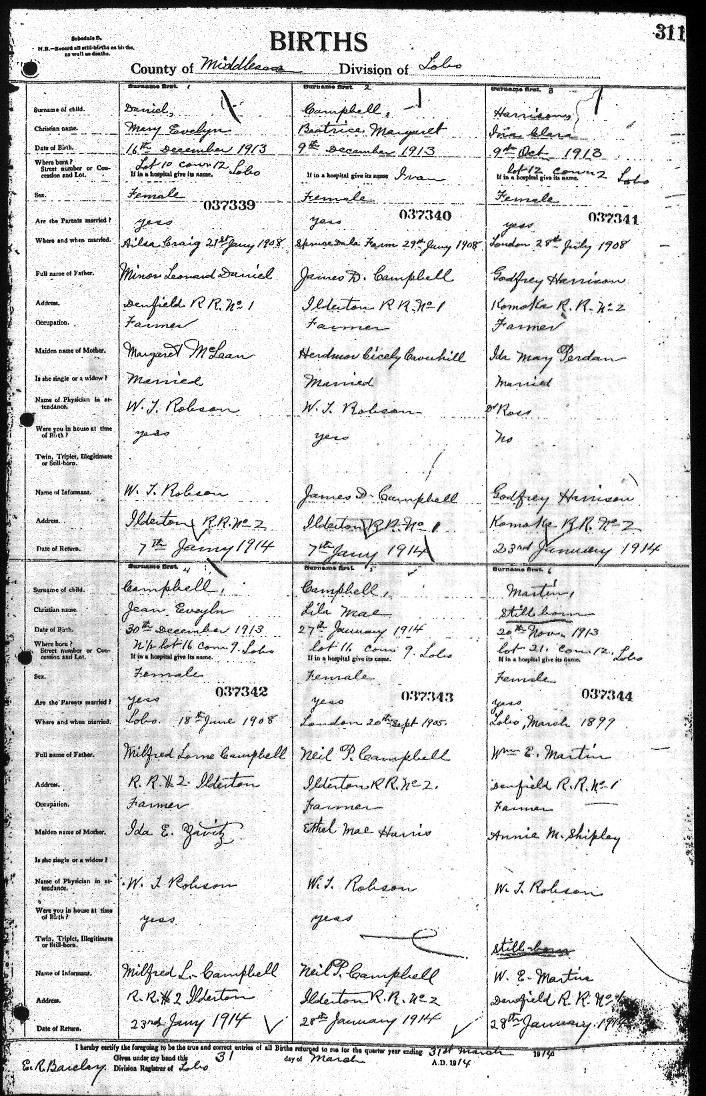 Schedule B.
N.B.—Record all still-births as births, as well as deaths.
BIRTHS
311
County of Middlesex Division of Lobo
Surname first. 1 Surname first. 2 Surname first. 3
Surname of child. Daniel, Campbell, Harrison,
Christian name. Mary Evelyn Beatrice Margaret Clara
Date of Birth. 16th December 1913 9th December 1913 9th Oct 1913
Where born? Street number or Concession and Lot. Lot 10 con 12 Lobo lot 12 con 2 Lobo
If in a hospital give its name. If in a hospital give its name Ivan If in a hospital give its name.
Sex. Female Female Female
037339 037340 037341
Are the Parents married? yess yess yess
Where and when married. Ailsa Craig 21st Jany 1908 Sprucedale Farm 29th Jany 1908 London 28th July 1908
Full name of Father. Minor Leonard Daniel James D. Campbell Godfrey Harrison
Address. Denfield R R. No 1 Ilderton R R. No 1 Komoka R. R. No 2
Occupation. Farmer Farmer Farmer
Maiden name of Mother. Margaret McLean Cicely Ida May Perdan
Is she single or a widow? Married Married Married
Name of Physician in attendance. W. T. Robson W. T. Robson Dr Ross
Were you in house at time of Birth? yess yess No
Twin, Triplet, Illegitimate or Still-born.
Name of Informant. W. T. Robson James D. Campbell Godfrey Harrison
Address. Ilderton R.R. No 2 Ilderton R.R. No 1 Komoka R.R. No 2
Date of Return. 7th Jany 1914 7th Jany 1914 23rd January 1914
Surname first. 4 Surname first. 5 Surname first. 6
Surname of child. Campbell, Campbell, Martin,
Christian name. Jean Eveyln Lila Mae Still born
Date of Birth. 30th December 1913 27th January 1914 20th Nov. 1913
Where born? Street number or Concession and Lot. N½ lot 16 con 9. Lobo lot 16 con 9. Lobo lot 21. con 12. Lobo
If in a hospital give its name. If in a hospital give its name. If in a hospital give its name.
Sex. Female Female Female
037342 037343 037344
Are the Parents married? yess yess yess
Where and when married. Lobo. 18th June 1908 London 20th Sept 1905. Lobo, March 1899
Full name of Father. Milfred Lorne Campbell Neil P. Campbell Wm E. Martin
Address. R. R # 2. Ilderton Ilderton R R. No 2. Denfield R. R. No 1
Occupation. Farmer Farmer Farmer
Maiden name of Mother. Ida E. Zavitz Ethel Mae Harris Annie M. Shipley
Is she single or a widow?
Name of Physician in attendance. W. T. Robson W. T. Robson W. T. Robson
Were you in house at time of Birth? yess yess
Twin, Triplet, Illegitimate or Still-born. still-born
Name of Informant. Milfred L. Campbell Neil P. Campbell W. E. Martin
Address. R. R. # 2 Ilderton Ilderton R. R. No 2 Denfield R. R. No
Date of Return. 23rd Jany 1914 28th January 1914 28th January 1914
I hereby certify the foregoing to be the true and correct entries of all Births returned to me for the quarter year ending 31st March 1914
Given under my hand this 31 day of March A.D. 1914
E. R. Barclay. Division Registrar of Lobo